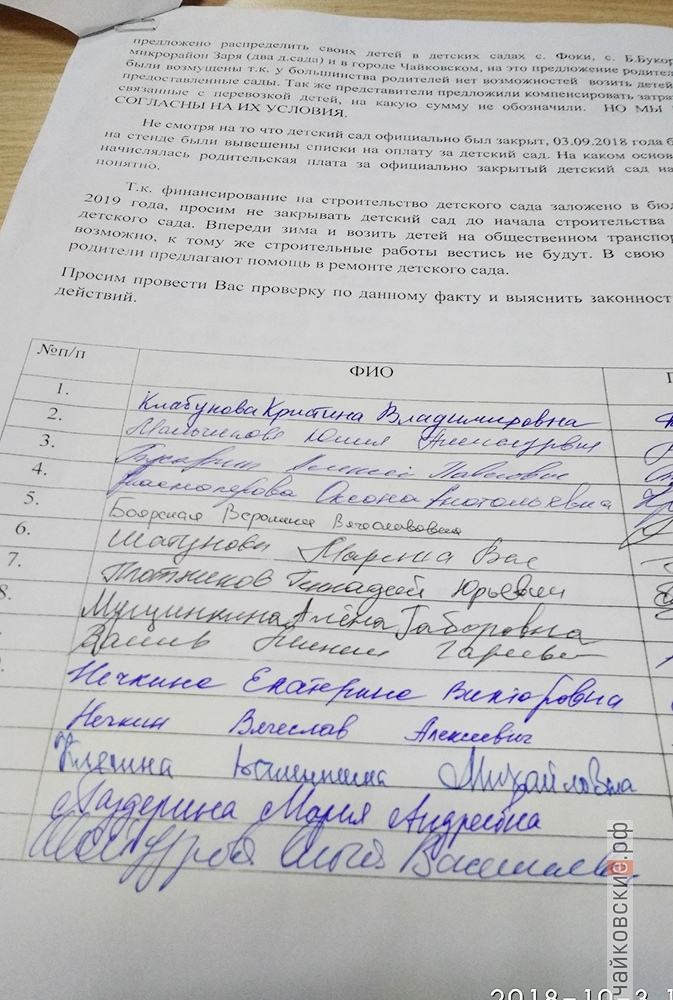 предложено распределить своих детей в детских садах с. Фоки, с. Б.Букор
микрорайон Заря (два д.сада) и в городе Чайковском, на это предложение родител
были возмущены т.к. у большинства родителей нет возможностей возить детей
предоставленные сады. Так же представители предложили компенсировать затрат
связанные с перевозкой детей, на какую сумму не обозначили. НО МЫ
СОГЛАСНЫ НА ИХ УСЛОВИЯ.
Не смотря на то что детский сад официально был закрыт, 03.09.2018 года б
на стенде были вывешены списки на оплату за детский сад. На каком основ
начислялась родительская плата за официально закрытый детский сад на
понятно.
Т.к. финансирование на строительство детского сада заложено в бюд
2019 года, просим не закрывать детский сад до начала строительства
детского сада. Впереди зима и возить детей на общественном транспор
возможно, к тому же строительные работы вестись не будут. В свою
родители предлагают помощь в ремонте детского сада.
Просим провести Вас проверку по данному факту и выяснить законност
действий.
№п/п ФИО
1. Клабукова Кристина Владимировна
2. Юлия
3. Павлович
4. Оксана Анатольевна
5. Боярская Вероника Вячеславовна
6. Шатунова Марина Вас
7. Плотников Геннадий Юрьевич
8. Мущинкина Алёна Габоровна
Нечкина Екатерина Викторовна
Нечкин Вячеслав Алексеевич
Михайловна
Лаздерина Мария Андреевна
Ольга
чайковские.рф
2018-10-3